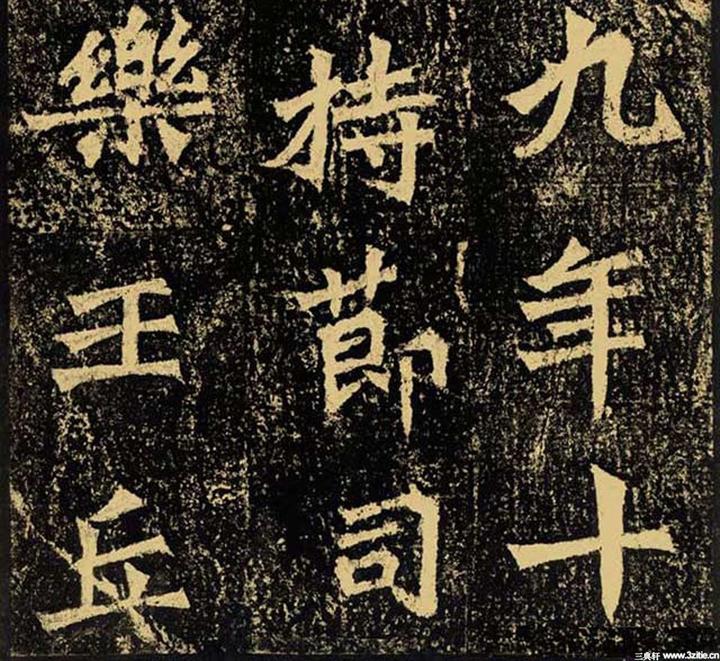 九年十
持節司
樂王丘
三典轩 www.3zitie.cn